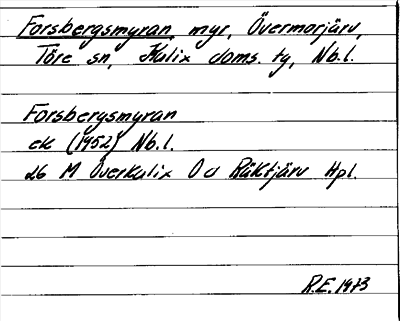 Forsbergsmyran, myr, Övermorjärv,
Töre sn, Kalix doms. tg, Nb.l.
Forsbergsmyran
ek (1952) Nb.l.
26 M Överkalix O v Räktjärv Hpl.
R.E. 1973